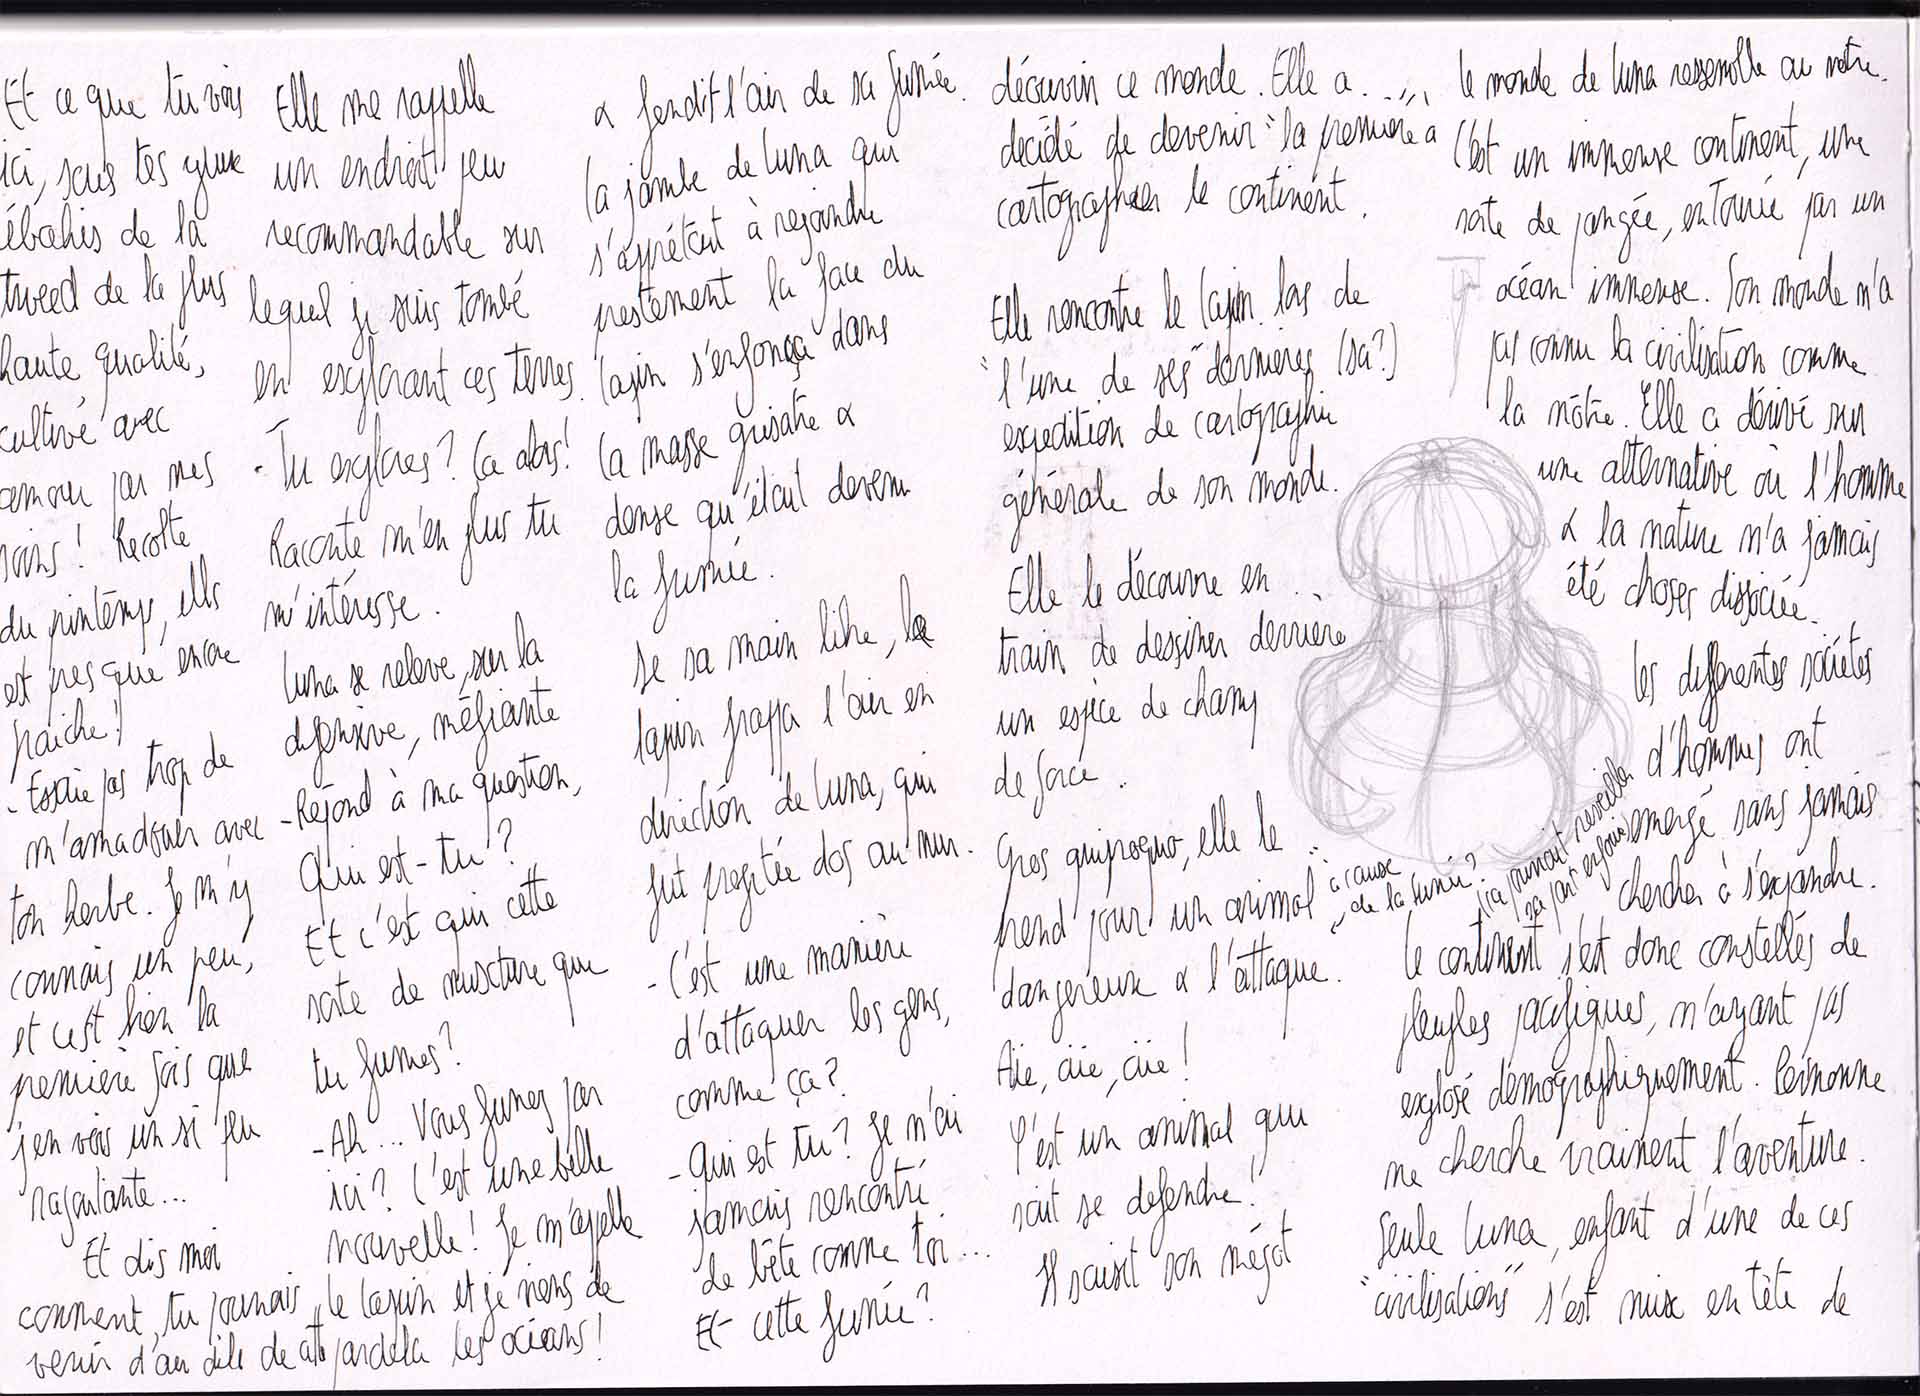 Et ce que tu vois
ici, sous tes yeux
ébahis de la
tweed de la plus
haute qualité,
cultivé avec
amour par mes
soins ! Récolte
du printemps, elle
est presque encore
fraiche !
- Essaie pas trop de
m'amadouer avec
ton herbe. Je m'y
connais un peu,
et c'est bien la
première fois que
j'en vois un si peu
ragoutante...
Et dis moi
comment, tu pourrais
venir d'au delà de
Elle me rappelle
un endroit peu
recommandable sur
lequel je suis tombé
en explorant ces terres.
- Tu explores ? Ça alors !
Raconte m'en plus tu
m'intéresse.
Luna se releve, sur la
défensive, méfiante
- Répond à ma question,
Qui est-tu ?
Et c'est qui cette
sorte de mixture que
tu fumes ?
- Ah... Vous fumez par
ici ? C'est une belle
nouvelle ! Je m'appelle
le lapin et je viens de
pardela les océans !
& fendit l'air de sa fumée.
La jambe de Luna qui
s'apprêtait à rejoindre
prestement la face du
lapin s'enfonça dans
la masse grisatre &
dense qu'était devenu
la fumée.
De sa main libre, le
lapin frappa l'air en
direction de Luna, qui
fut projetée dos au mur.
- C'est une manière
d'attaquer les gens,
comme ça ?
- Qui est tu ? Je n'ai
jamais rencontré
de bête comme toi...
Et cette fumée ?
découvrir ce monde. Elle a
décidé de devenir "la première à
cartographier le continent.
Elle rencontre le lapin lors de
"l'une de ses" dernières (sa ?)
expédition de cartographie
générale de son monde.
Elle le découvre en
train de dessiner derrière
un espèce de champ
de force.
Gros quiproquo, elle le
prend pour un animal
"à cause
de la fumée ?
dangereux & l'attaque.
Aïe, aïe, aïe !
C'est un animal qui
sait se defendre !
Il saisit son mégot
Le monde de Luna ressemble au notre.
C'est un immense continent, une
sorte de pangée, entourée par un
océan immense. Son monde n'a
pas connu la civilisation comme
la nôtre. Elle a dérivé sur
une alternative où l'homme
& la nature n'a jamais
été choses dissociée.
Les differentes sociétés
d'hommes ont
émergé sans jamais
chercher à s'expandre.
Le continent s'est donc constellés de
peuples pacifiques, n'ayant pas
explosé démographiquement. Personne
ne cherche vraiment l'aventure.
Seule Luna, enfant d'une de ces
"civilisations" s'est mise en tête de